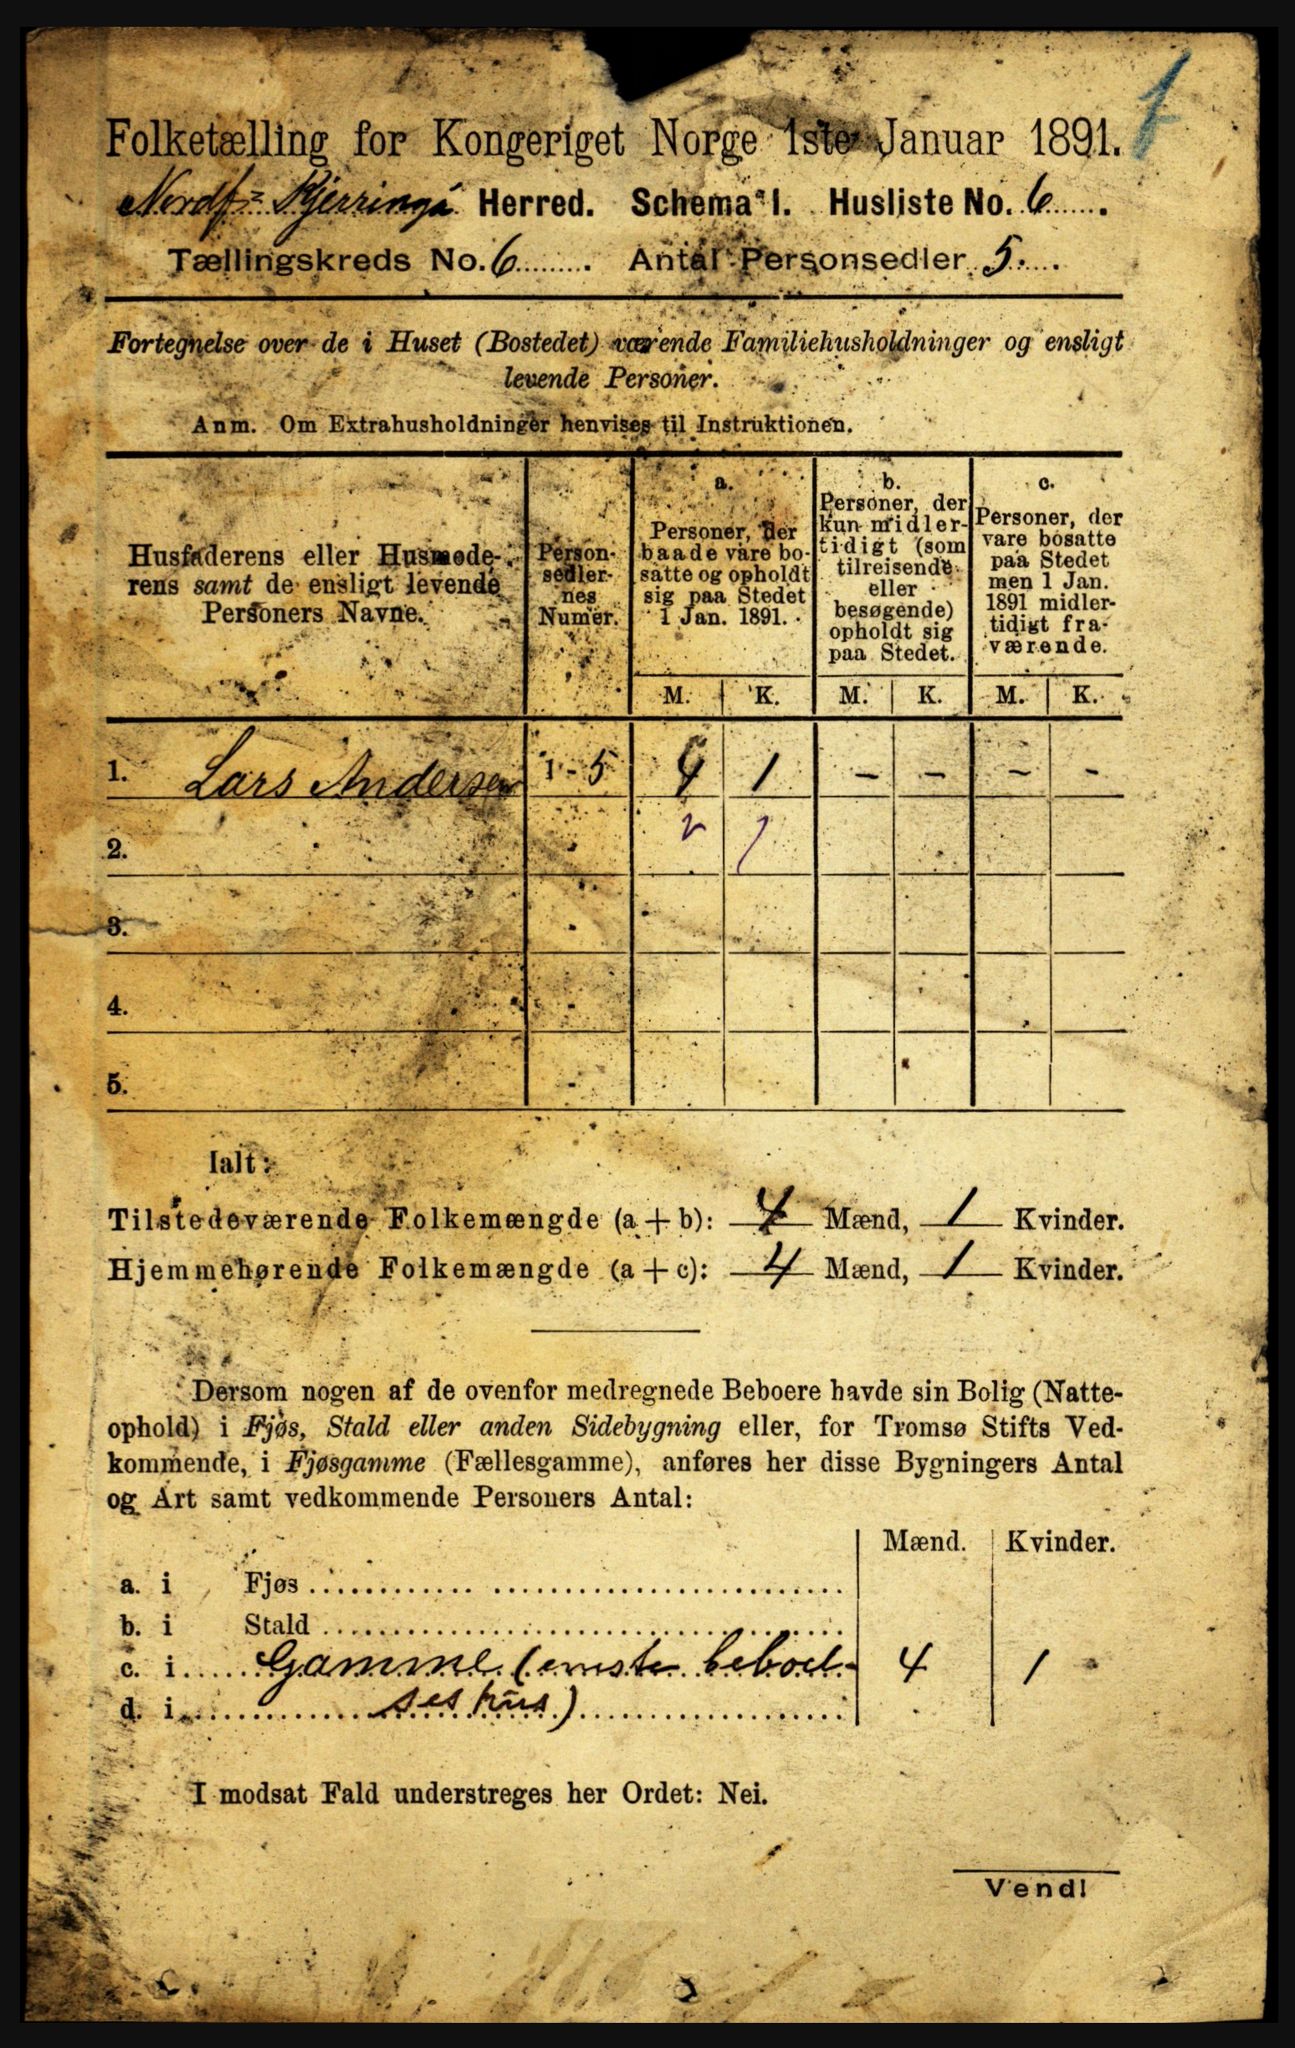 1
Folketælling for Kongeriget Norge 1ste Januar 1891.
Nordf.= Kjerringø Herred. Schema 1. Husliste No. 6
Tællingskreds No. 6 . Antal Personsedler 5.
Fortegnelse over de i Huset (Bostedet) værende Familiehusholdninger og ensligt
levende Personer.
Anm. Om Extrahusholdninger henvises til Instruktionen.
Husfaderens eller Husmode-
rens samt de ensligt levende
Personers Navne.
Person-
sedler-
nes
Numer.
a.
Personer, der
baade vare bo-
satte og opholdt
sig paa Stedet
1 Jan. 1891.
b.
Personer, der
kun midler-
tidigt (som
tilreisende
eller
besøgende)
opholdt sig
paa Stedet.
c.
Personer, der
vare bosatte
paa Stedet
men 1 Jan.
1891 midler-
tidigt fra-
værende.
M. K. M. K. M. K.
1. Lars Andersen 1 - 5 4 1 - - - -
2.
3.
4.
5.
Ialt:
Tilstedeværende Folkemængde (a + b): 4 Mænd, 1 Kvinder.
Hjemmehørende Folkemængde (a + c): 4 Mænd, 1 Kvinder.
Dersom nogen af de ovenfor medregnede Beboere havde sin Bolig (Natte-
ophold) i Fjøs, Stald eller anden Sidebygning eller, for Tromsø Stifts Ved-
kommende, i Fjøsgamme (Fællesgamme), anføres her disse Bygningers Antal
og Art samt vedkommende Personers Antal:
Mænd. Kvinder.
a. i Fjøs
b. i Stald
c. i Gamme (eneste beboel- 4 1
d. i seshus)
I modsat Fald understreges her Ordet: Nei.
Vend!